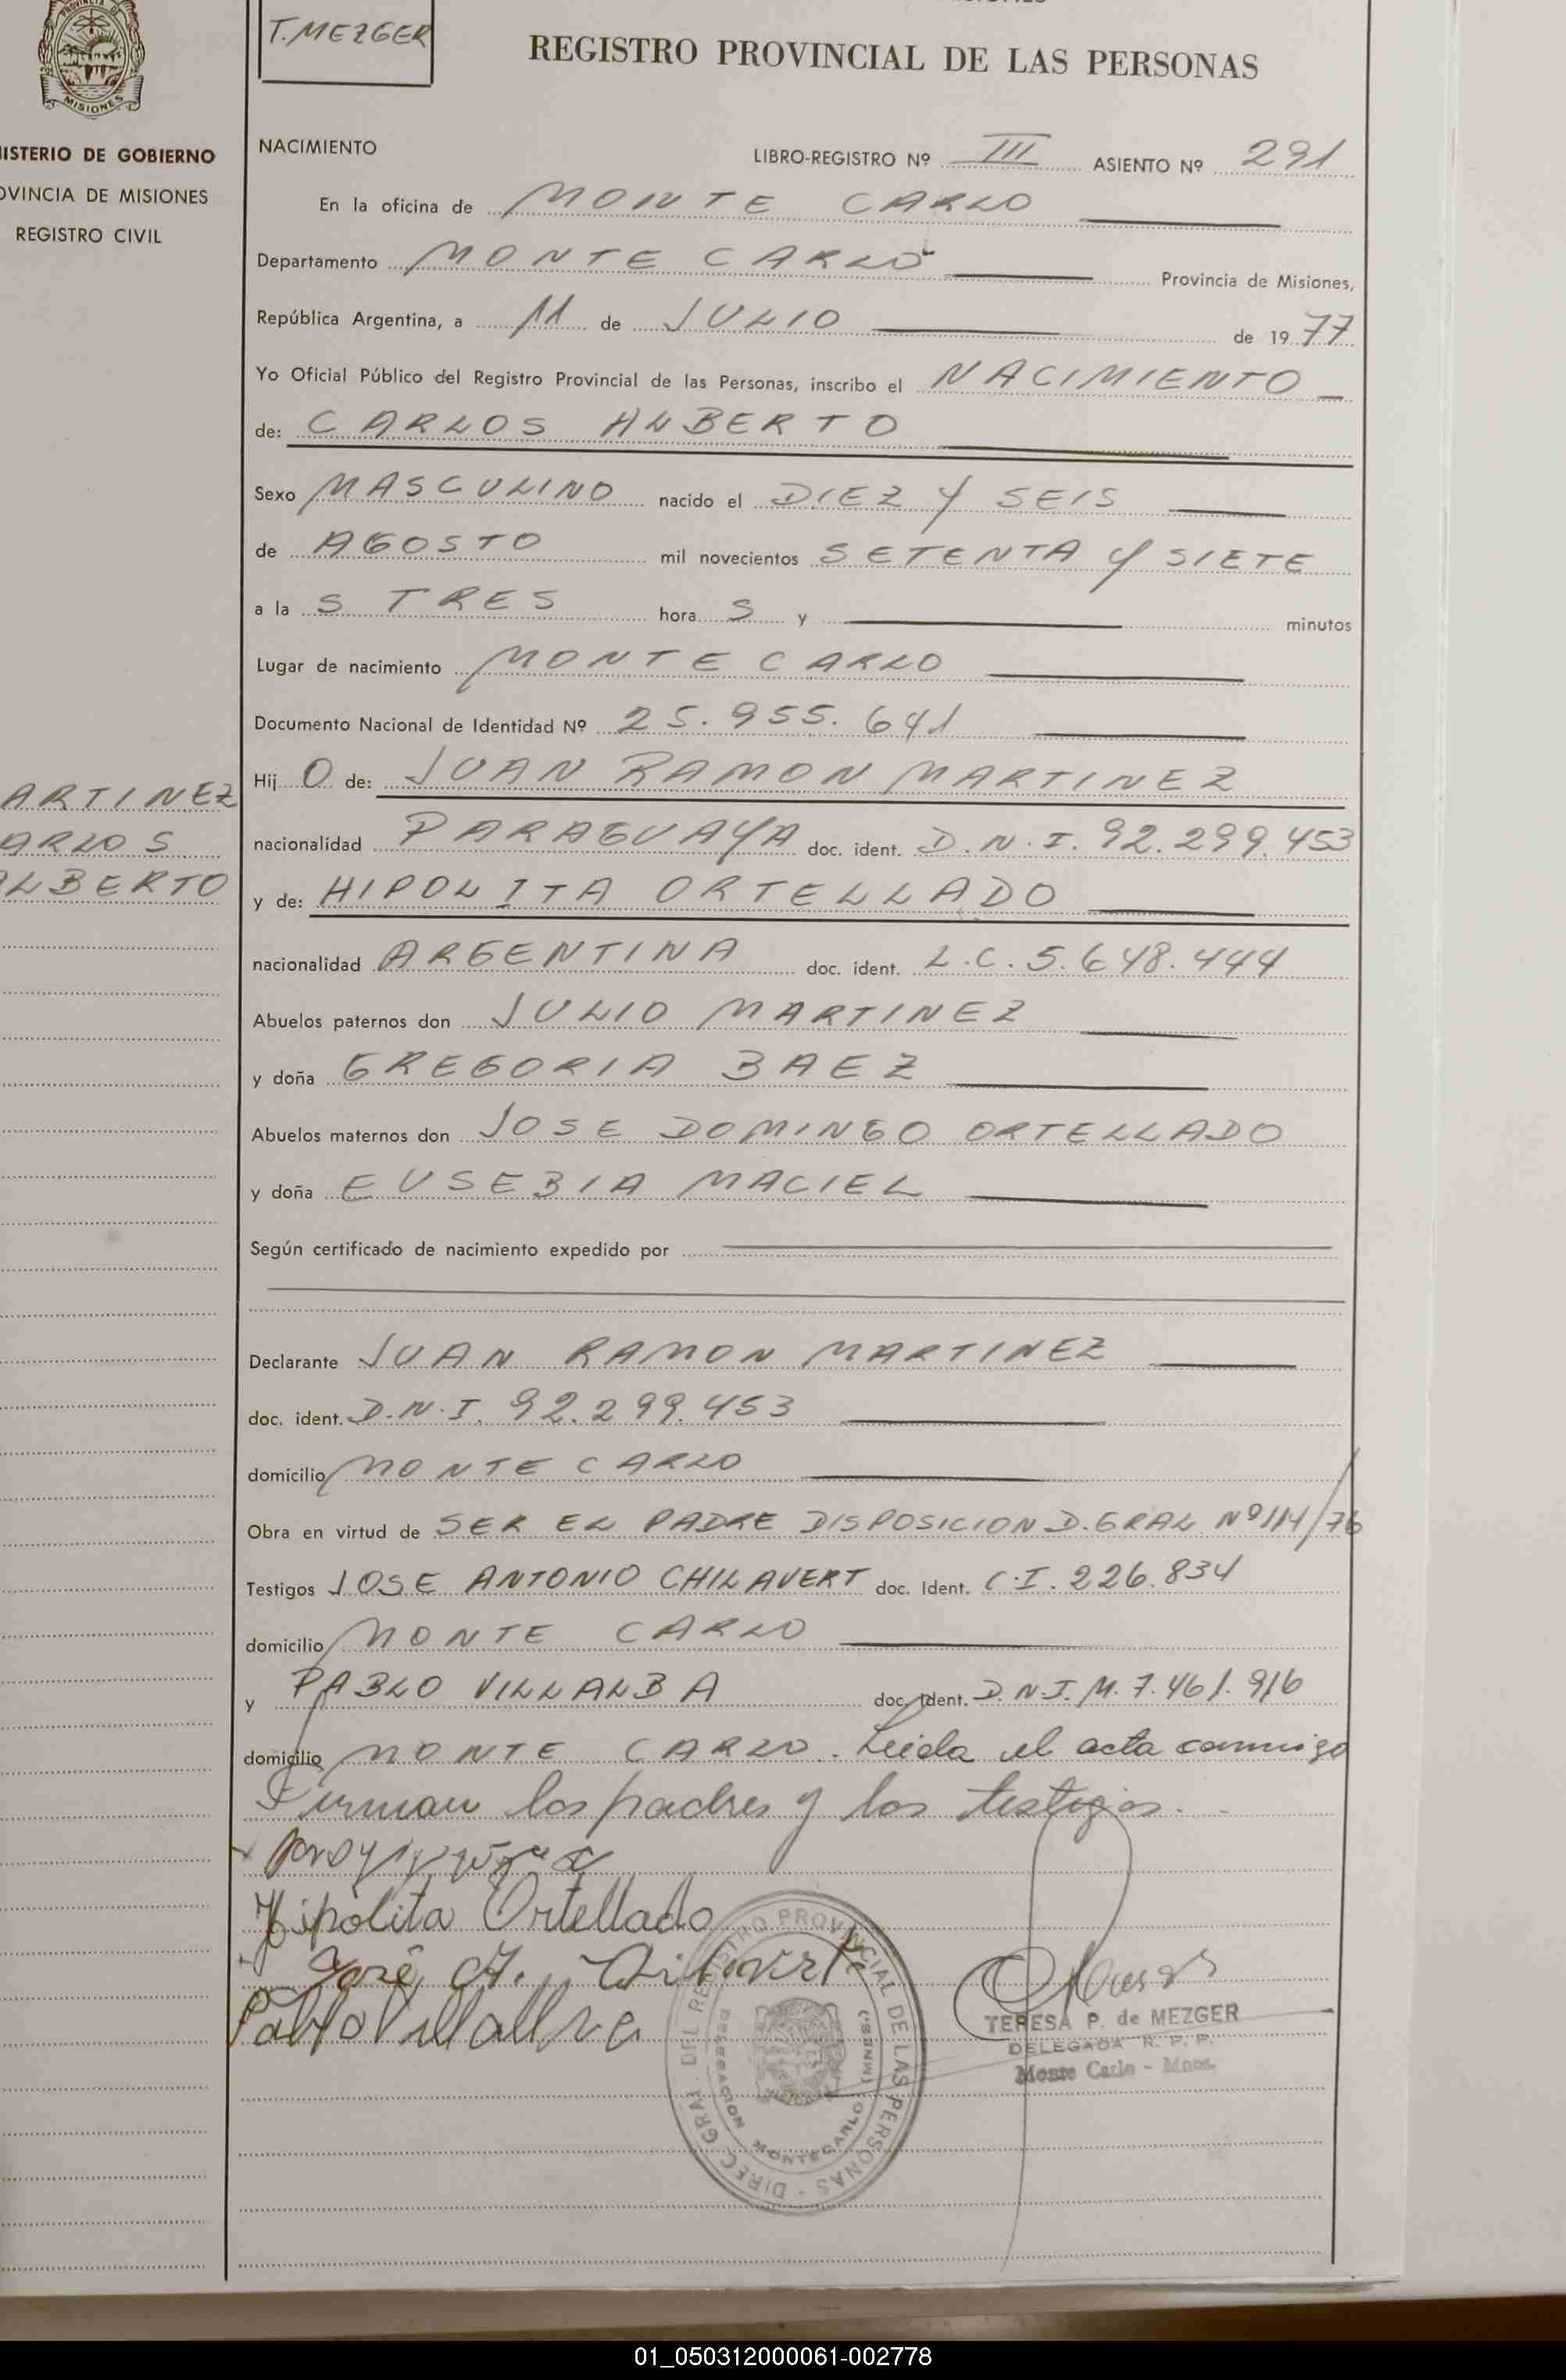 T. MEZGER
REGISTRO PROVINCIAL DE LAS PERSONAS
MISIONES
ISTERIO DE GOBIERNO
OVINCIA DE MISIONES
REGISTRO CIVIL
NACIMIENTO
LIBRO-REGISTRO Nº III ASIENTO Nº 291
En la oficina de MONTE CARLO
Departamento MONTE CARLO Provincia de Misiones,
República Argentina, a 11 de JULIO de 1977
Yo Oficial Público del Registro Provincial de las Personas, inscribo el NACIMIENTO
de: CARLOS ALBERTO
Sexo MASCULINO nacido el DIEZ Y SEIS
de AGOSTO mil novecientos SETENTA Y SIETE
a la S TRES hora S y minutos
Lugar de nacimiento MONTE CARLO
Documento Nacional de Identidad Nº 25.955.641
Hij O de: JUAN RAMON MARTINEZ
ARTINEZ
nacionalidad PARAGUAYA doc. ident. D.N.I. 92.299.453
ARLOS
y de: HIPOLITA ORTELLADO
ALBERTO
nacionalidad ARGENTINA doc. ident. L.C. 5.648.444
Abuelos paternos don JULIO MARTINEZ
y doña GREGORIA BAEZ
Abuelos maternos don JOSE DOMINGO ORTELLADO
y doña EUSEBIA MACIEL
Según certificado de nacimiento expedido por
Declarante JUAN RAMON MARTINEZ
doc. ident. D.N.I. 92.299.453
domicilio MONTE CARLO
Obra en virtud de SER EL PADRE DISPOSICION D. GRAL Nº 114/76
Testigos JOSE ANTONIO CHILAVERT doc. Ident. C.I. 226.834
domicilio MONTE CARLO
y PABLO VILLALBA doc. Ident. D.N.I. M. 7.461.916
domicilio MONTE CARLO. Leida el acta conmigo
Firman los padres y los testigos.
Hipólita Ortellado
José A. Chilavert
Pablo Villalba
DIREC. GRAL. DEL REGISTRO PROVINCIAL DE LAS PERSONAS
DELEGACION MONTECARLO (MNES.)
TERESA P. de MEZGER
DELEGADA R. P. P.
Monte Carlo - Mnes.
01_050312000061-002778